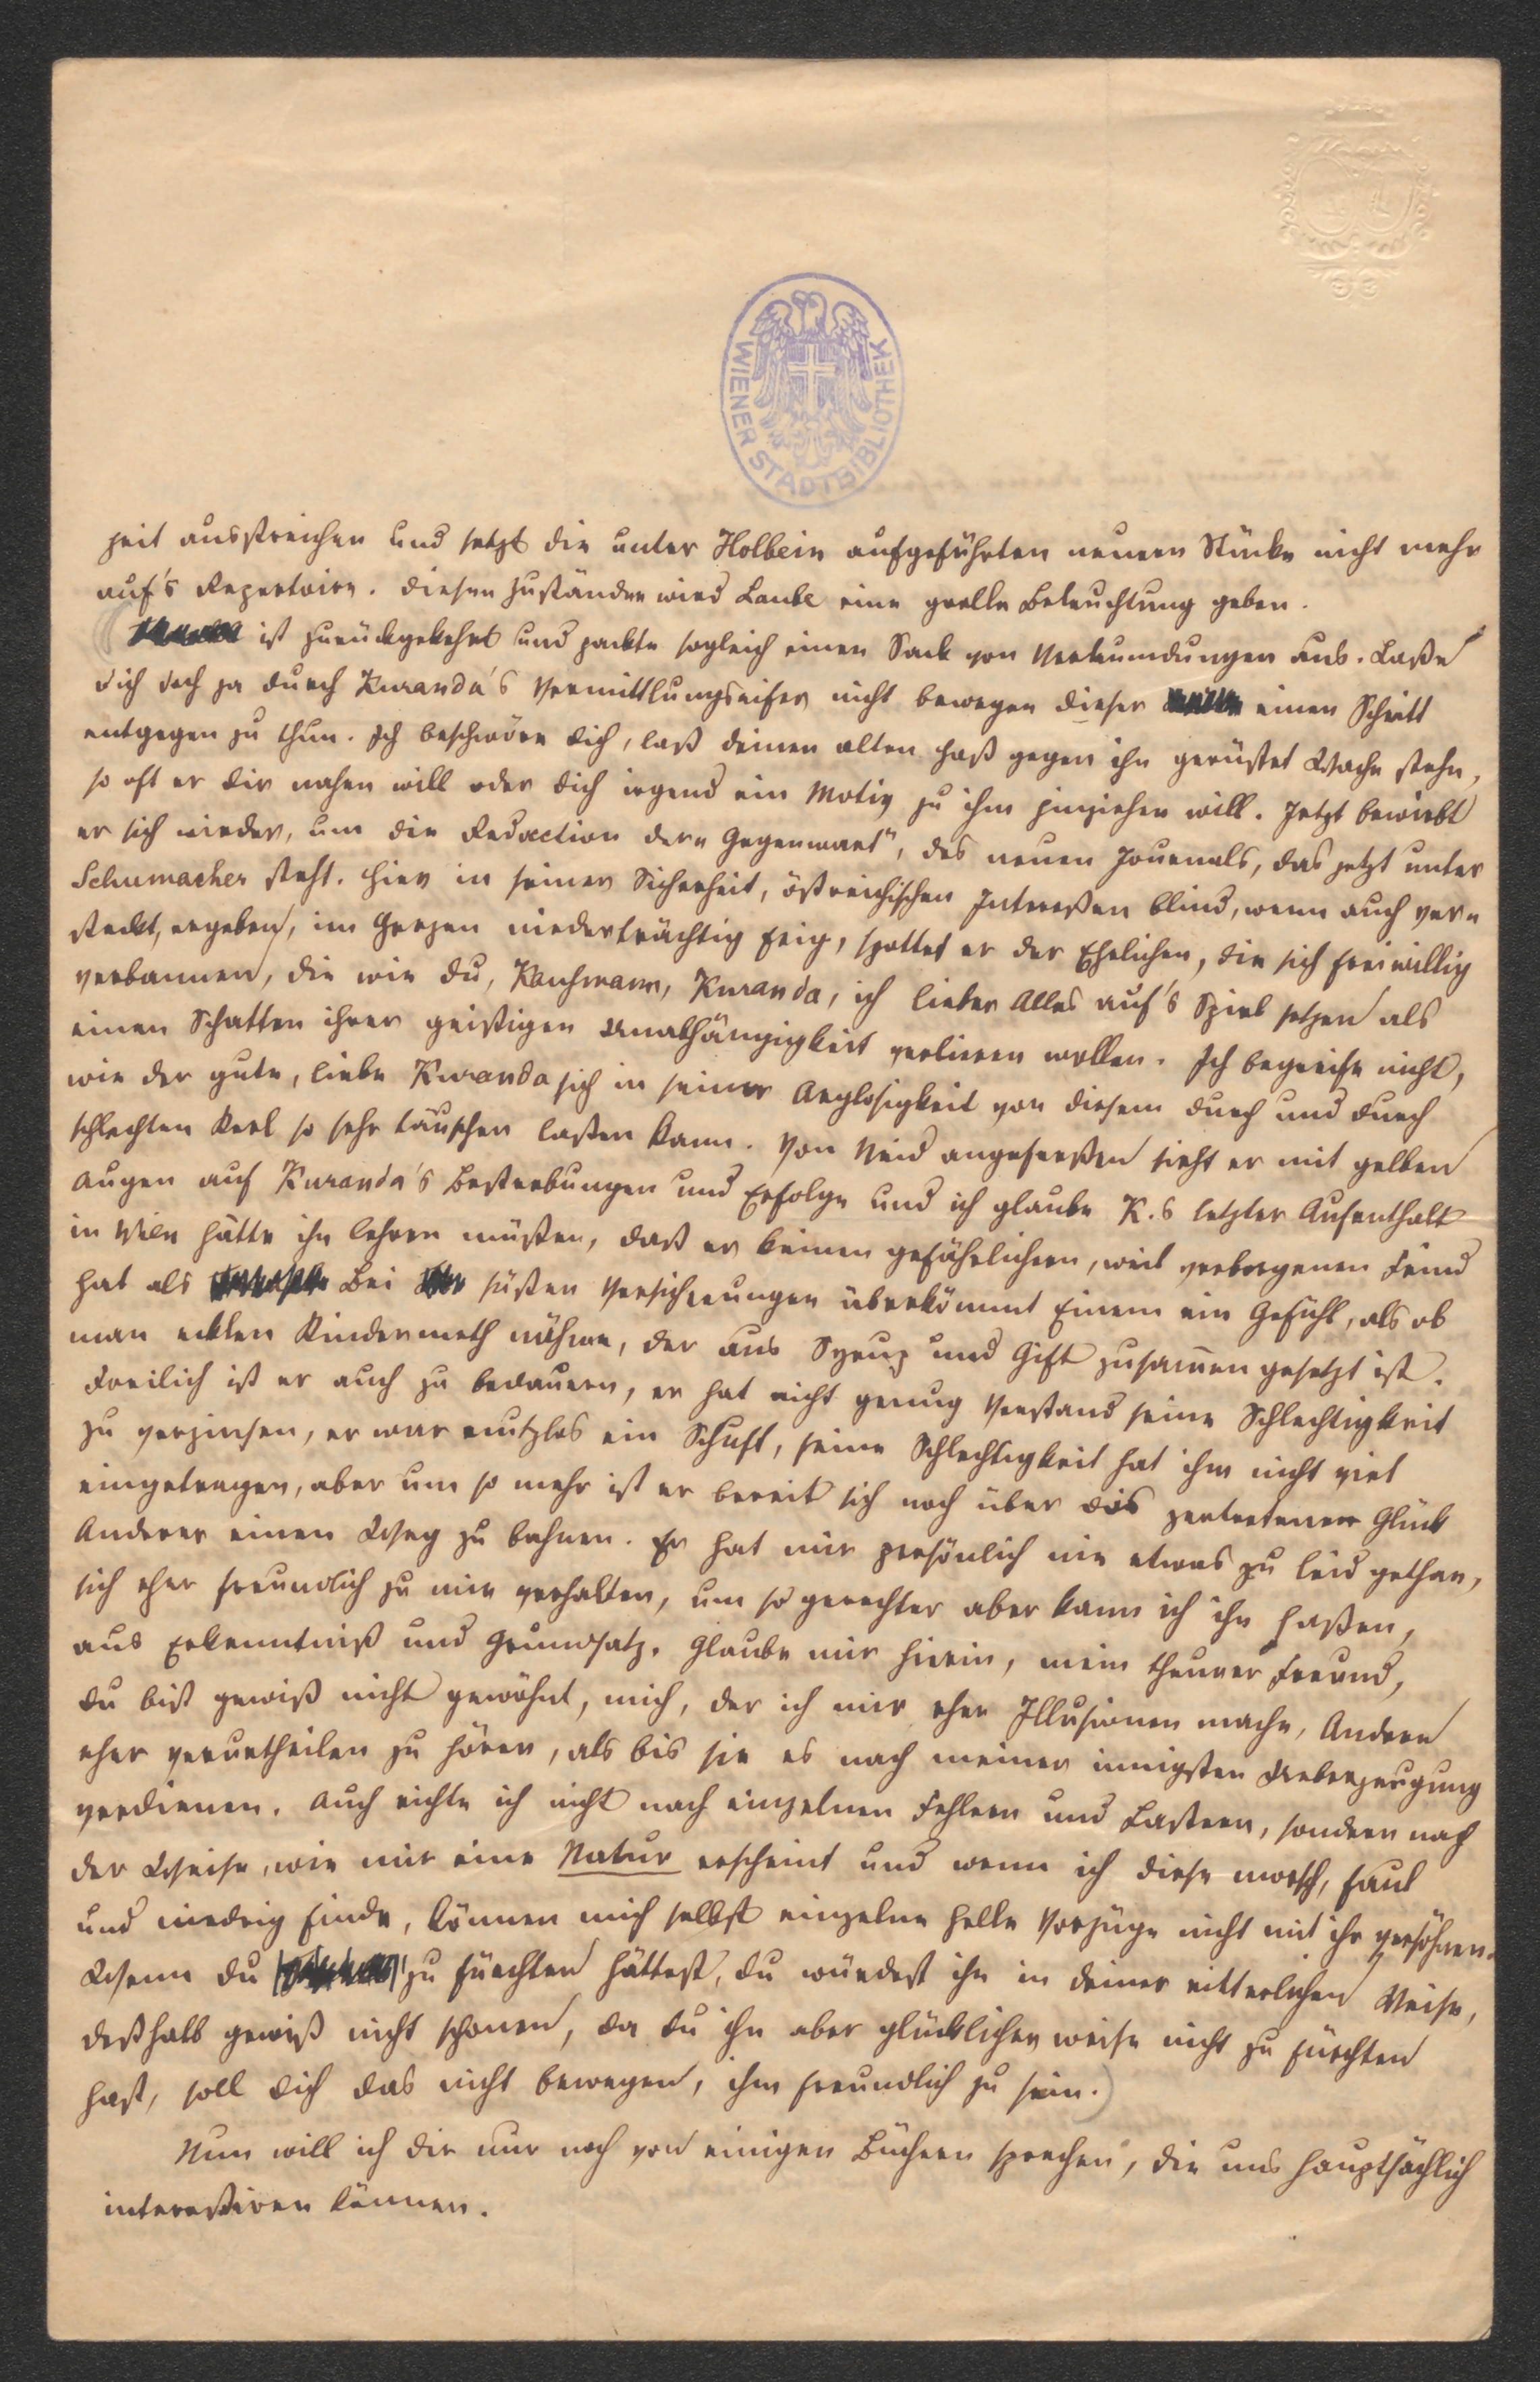 WIENER STADTBIBLIOTHEK
zeit ausstreichen und setzt die unter Holbein aufgeführten neuern Stücke nicht mehr
auf's Repertoire. Diesen Zuständen wird Laube eine grelle Beleuchtung geben.
ist zurückgekehrt und packte sogleich einen Sack von Verleumdungen aus. Laße
dich doch ja durch Kuranda's Vermittlungseifer nicht bewegen dieser einen Schritt
entgegen zu thun. Ich beschwöre dich, laß deinen alten Haß gegen ihn gerüstet Wache stehn,
so oft er dir nahen will oder dich irgend ein Motiv zu ihm hinziehen will. Jetzt bewirbt
er sich wieder, um die Redaction der „Gegenwart", des neuen Journals, das jetzt unter
Schumacher steht. Hier in seiner Sicherheit, östreichischen Intereßen blind, wenn auch ver-
steckt, ergeben, im Herzen niederträchtig feig, spottet er der Ehrlichen, die sich freiwillig
verbannen, die wie du, Kaufmann, Kuranda, ich lieber Alles auf's Spiel setzen als
einen Schatten ihrer geistigen Unabhängigkeit verlieren wollen. Ich begreife nicht,
wie der gute, liebe Kuranda sich in seiner Arglosigkeit von diesem durch und durch
schlechten Kerl so sehr täuschen laßen kann. Von Neid angefreßen sieht er mit gelben
Augen auf Kuranda's Bestrebungen und Erfolge und ich glaube K.s letzter Aufenthalt
in Wien hätte ihn lehren müßen, daß er keinen gefährlichern, weil verborgenen Feind
hat als Bei süßen Versicherungen überkömmt Einem ein Gefühl, als ob
man eklen Kindermeth nähme, der aus Syrup und Gift zusam̅en gesetzt ist.
Freilich ist er auch zu bedauern, er hat nicht genug Verstand seine Schlechtigkeit
zu verzinsen, er war nutzlos ein Schuft, seine Schlechtigkeit hat ihm nicht viel
eingetragen, aber um so mehr ist er bereit sich noch über das zertretene Glück
Anderer einen Weg zu bahnen. Er hat mir persönlich nie etwas zu leid gethan,
sich eher freundlich zu mir verhalten, um so gerechter aber kann ich ihn haßen,
aus Erkenntniß und Grundsatz. Glaube mir hierin, mein theurer Freund,
du bist gewiß nicht gewöhnt, mich, der ich mir eher Illusionen mache, Andere
eher verurtheilen zu hören, als bis sie es nach meiner innigsten Ueberzeugung
verdienen. Auch richte ich nicht nach einzelnen Fehlern und Lastern, sondern nach
der Weise, wie mir eine Natur erscheint und wenn ich diese morsch, faul
und niedrig finde, können mich selbst einzelne helle Vorzüge nicht mit ihr versöhnen.
Wenn du zu fürchten hättest, du würdest ihn in deiner ritterlichen Weise,
deßhalb gewiß nicht schonen, da du ihn aber glücklicher weise nicht zu fürchten
hast, soll dich das nicht bewegen, ihm freundlich zu sein.)
Nun will ich dir nur noch von einigen Büchern sprechen, die uns hauptsächlich
intereßiren können.